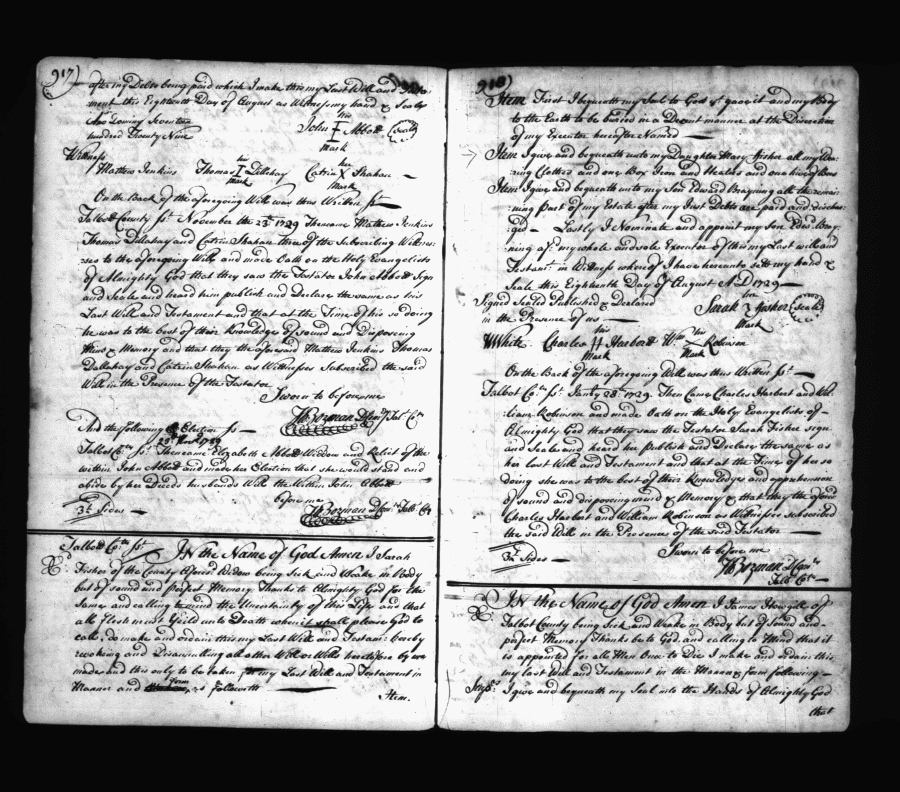 917)
after my Debts being paid which I make this my Last Will and
ment this Eighteenth Day of August as Witness my hand & Seale
Ano Domini Seventeen
hundred Twenty Nine
his
John Abbott (Seale)
Mark
Wittness
Matthew Jenkins Thomas T Dillahay Catrin X Shahan
his her
Mark Mark
On the Back of the aforegoing Will was thus Written ss
Talbot County ss November the 25th 1729 Then came Mathew Jenkins
Thomas Dillahay and Catrin Shahan three of the Subscribing Witnes
ses to the aforegoing Will and made Oath on the Holy Evangelists
of Almighty God that they saw the Testator John Abbott Sign
and Seale and heard him publish and Declare the same as his
Last Will and Testament and that at the Time of his so doing
he was to the best of their Knowledge of sound and Disposeing
Mind & Memory and that they the aforesaid Matthew Jenkins Thomas
Dallahay and Catrin Shahan as Witnesses Subscribed the said
Will in the Presence of the Testator
Sworn to before me
Bozman D Comry Talt Cty
And the following Election ss
25th Novr 1729
Talbot Cty ss Then came Elizabeth Abbott Widdow and Relict of the
within John Abbott and made her Election that she would stand and
abide by her Deceds husbands Will the Within John Abbott
before me
Bozman D Comry Talbt Cty
3t Sides
Talbot Coty ss IN the Name of God Amen I Sarah
Fisher of the County Aforesd Widow being Sick and Weake in Body
but of sound and perfect Memory Thanks to Almighty God for the
Same and calling to mind the Uncertainty of this Life and that
all Flesh must Yeild unto Death when it shall please God to
call, do make and ordain this my Last Will and Testamt hereby
revoking and Disanulling all other Will or Wills heretofore by me
made and this only to be taken for my Last Will and Testament in
Manner and form as followeth
Item
918)
Item First I bequeath my Soul to God yt gave it and my Body
to the Earth to be buried in a Decent manner at the Discretion
of my Executor hereafter Named
Item I give and bequeath unto my Daughter Mary Fisher all my Wea
ring Cloths and one Boy Iron and Heaters and one
Item I give and bequeath unto my Son Edward Brayning all the remai
ning part of my Estate after my Just Debts are paid and dischar
ged Lastly I Nominate and appoint my Son Edwd Bray
ning of my whole and sole Executor of this my Last will and
Testamt in Witness whereof I have hereunto sett my hand &
Seale this Eighteenth Day of August A D 1729
Signed Sealed Published & Declared
in the Presence of us
her
Sarah Fisher (Seale)
Mark
W White Charles H Harbert Wm X Robinson
his his
Mark Mark
On the Back of the aforegoing Will was thus Written ss
Talbot Coty ss Janry 28th 1729 Then Came Charles Harbert and Wil
liam Robinson and made Oath on the Holy Evangelists of
Almighty God that they saw the Testator Sarah Fisher sign
and Seale and heard her publish and Declare the same as
her last Will and Testament and that at the Time of her so
doing she was to the best of their Knowledge and apprehension
of sound and disposeing mind & Memory & that they the aforesd
Charles Harbert and William Robinson as Witnesses subscribed
the said Will in the Presence of the said Testator
Sworn to before me
3t Sides
Bozman D Comry
Talbt Coty
IN the Name of God Amen I James Howgill of
Talbot County being Sick and Weake in Body but of sound and
perfect Memory Thanks be to God, and calling to Mind that it
is appointed for all Men Once to Die I make and ordain this
my last Will and Testament in the Manner & form following
Imps I give and bequeath my Soul into the Hands of Almighty God
that